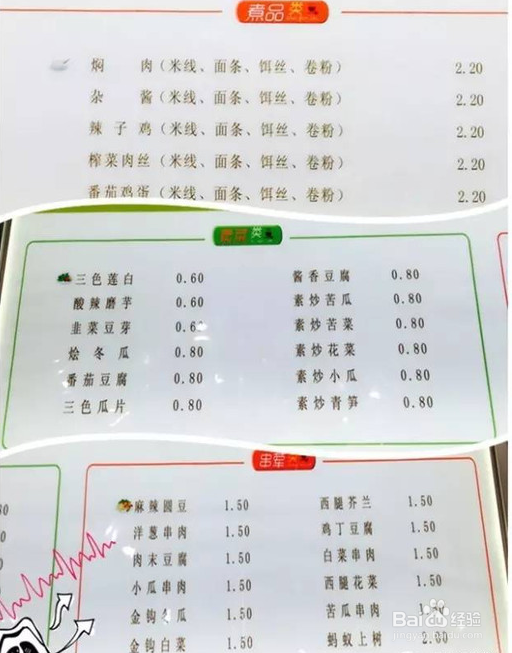 煮品类
焖 肉（米线、面条、饵丝、卷粉） 2.20
杂 酱（米线、面条、饵丝、卷粉） 2.20
辣 子 鸡（米线、面条、饵丝、卷粉） 2.20
榨菜肉丝（米线、面条、饵丝、卷粉） 2.20
番茄鸡蛋（米线、面条、饵丝、卷粉） 2.20
类
三色莲白 0.60 酱香豆腐 0.80
酸辣磨芋 0.60 素炒苦瓜 0.80
韭菜豆芽 0.6 素炒苦菜 0.80
烩冬瓜 0.80 素炒花菜 0.80
番茄豆腐 0.80 素炒小瓜 0.80
三色瓜片 0.80 素炒青笋 0.80
串荤类
麻辣圆豆 1.50 西腿芥兰 1.50
洋葱串肉 1.50 鸡丁豆腐 1.50
肉末豆腐 1.50 白菜串肉 1.50
小瓜串肉 1.50 西腿花菜 1.50
金钩冬瓜 1.50 苦瓜串肉 1.50
金钩白菜 1.50 蚂蚁上树 2.00
Baidu经验
jingyan.baidu.com